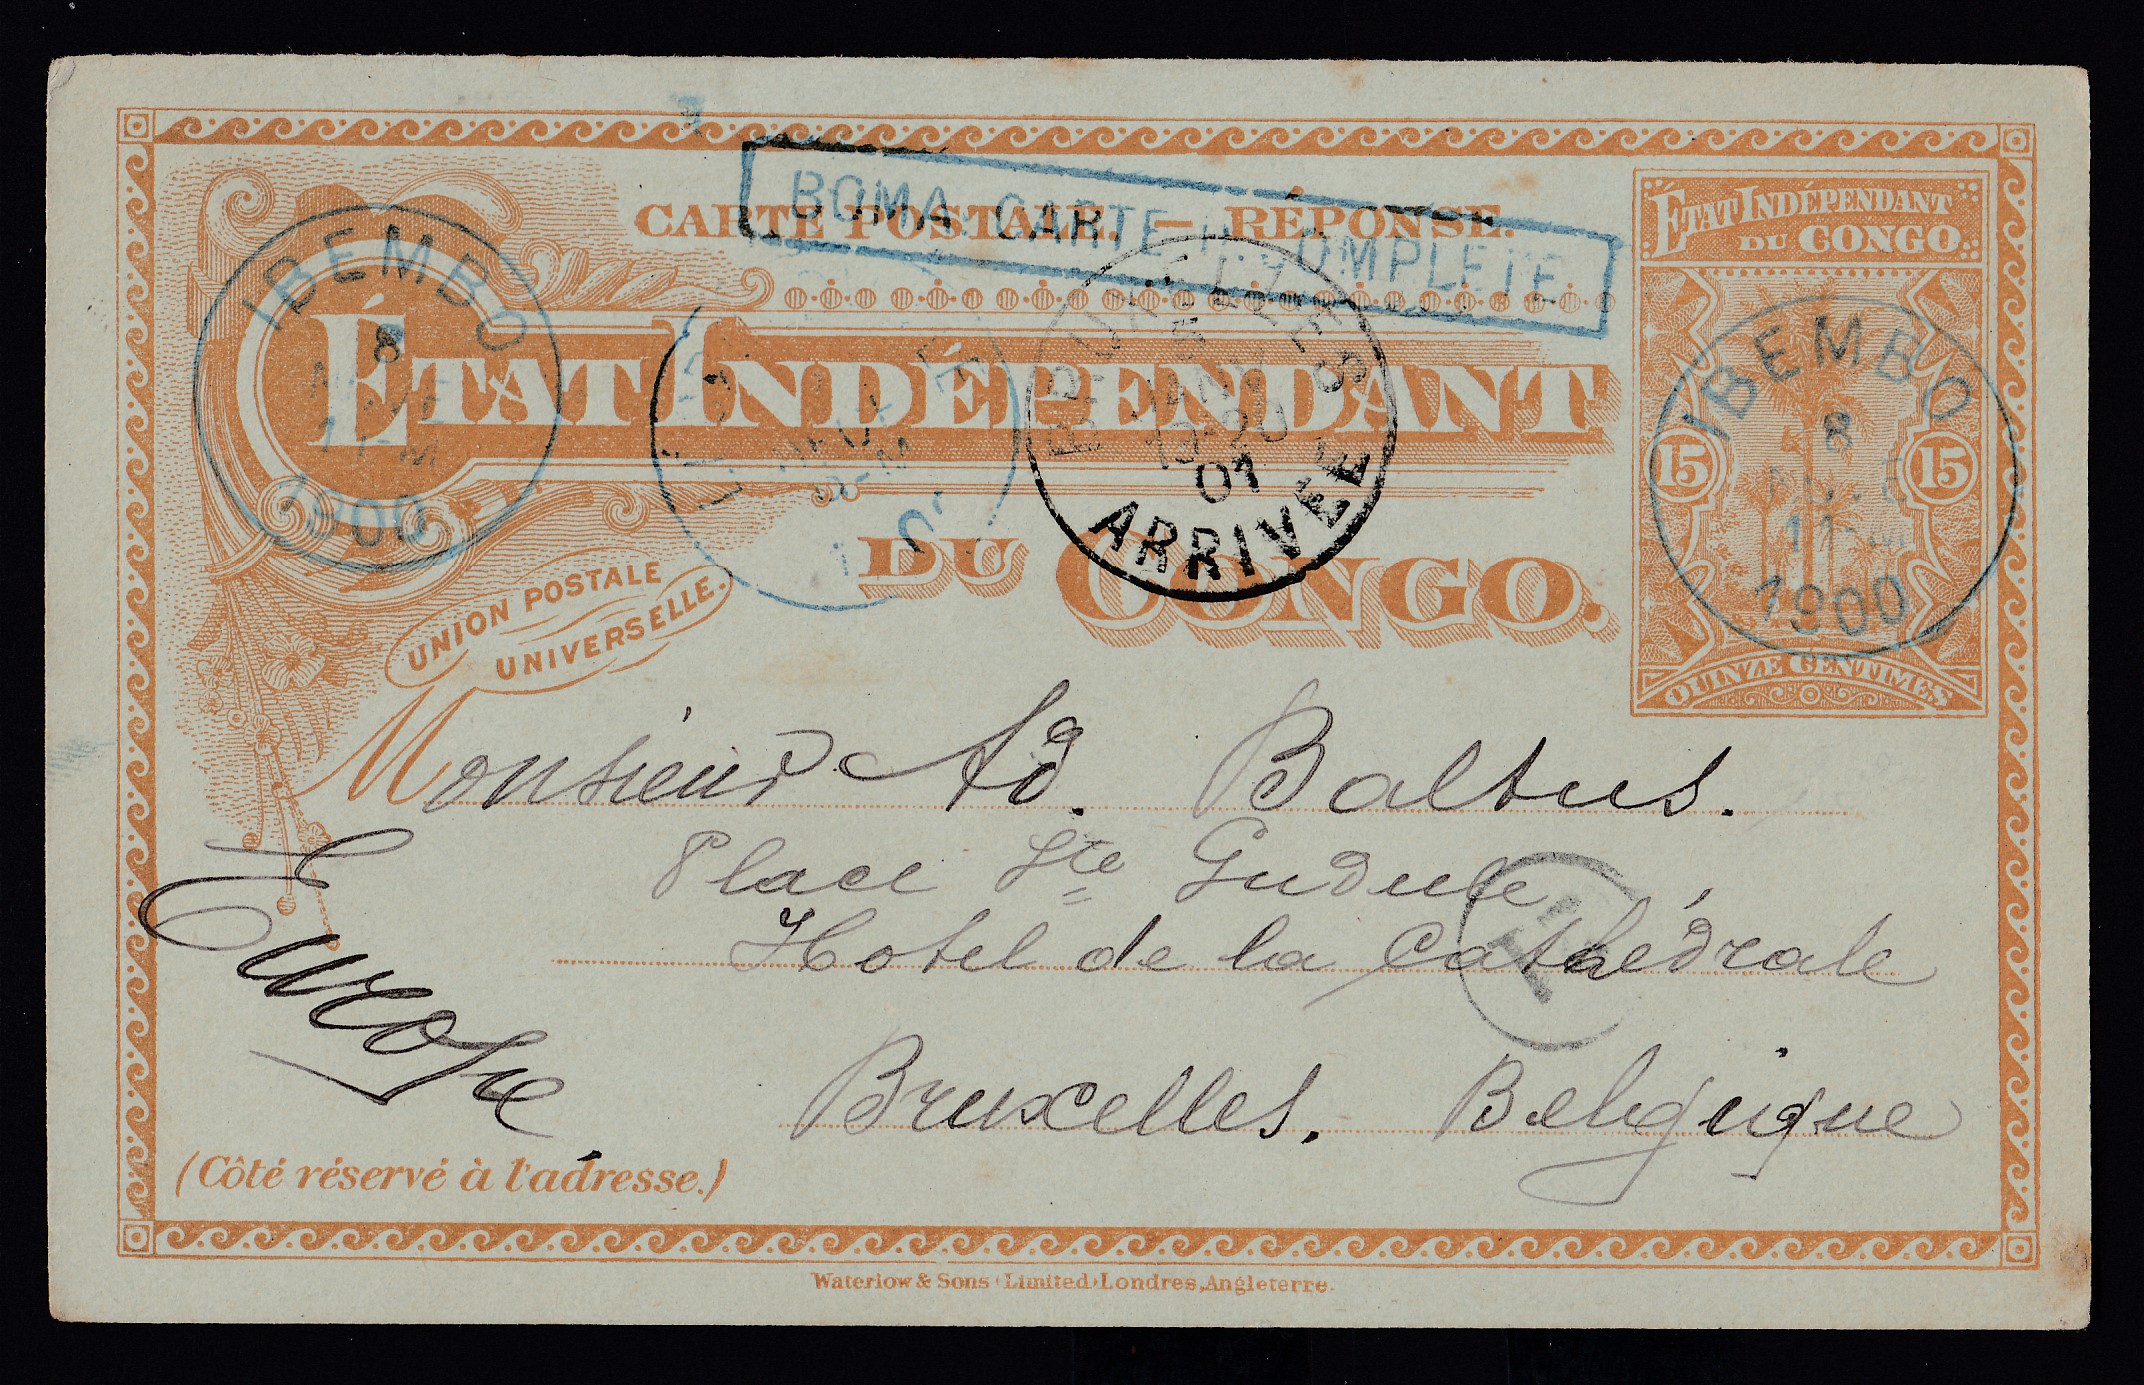 CARTE POSTALE. — RÉPONSE.
BOMA CARTE INCOMPLETE
ÉTAT INDÉPENDANT
DU CONGO.
15 15
QUINZE CENTIMES
IBEMBO
8
11-M
1900
ÉTAT INDÉPENDANT
DU CONGO.
BRUXELLES
5
JANV
13-20
01
ARRIVEE
IBEMBO
8
11-M
1900
UNION POSTALE
UNIVERSELLE.
Monsieur Ad. Baltus.
Place Ste Gudule
Hotel de la Cathédrale
Bruxelles. Belgique
Europe
T
(Côté réservé à l'adresse.)
Waterlow & Sons (Limited) Londres, Angleterre.